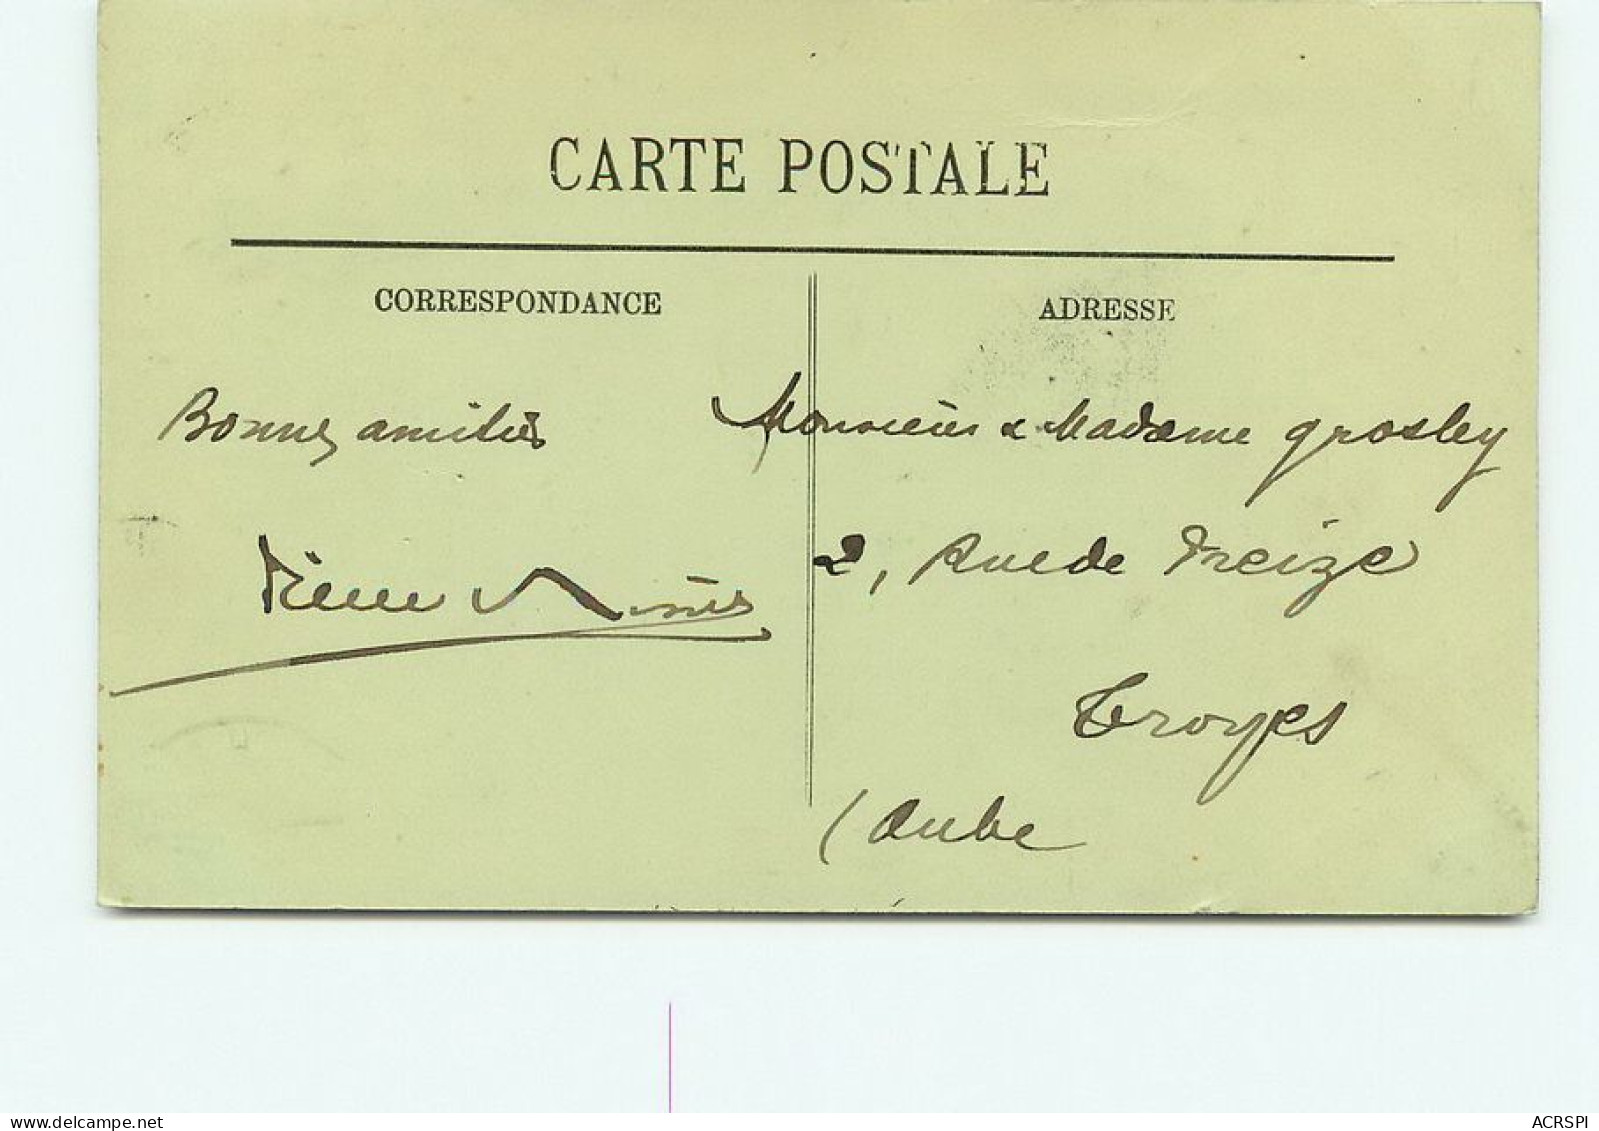 CARTE POSTALE
CORRESPONDANCE
ADRESSE
Bonnes amitiés
Pierre
Monsieur & Madame Grosley
2, Rue de Treize
Troyes
(Aube
ACRSPI